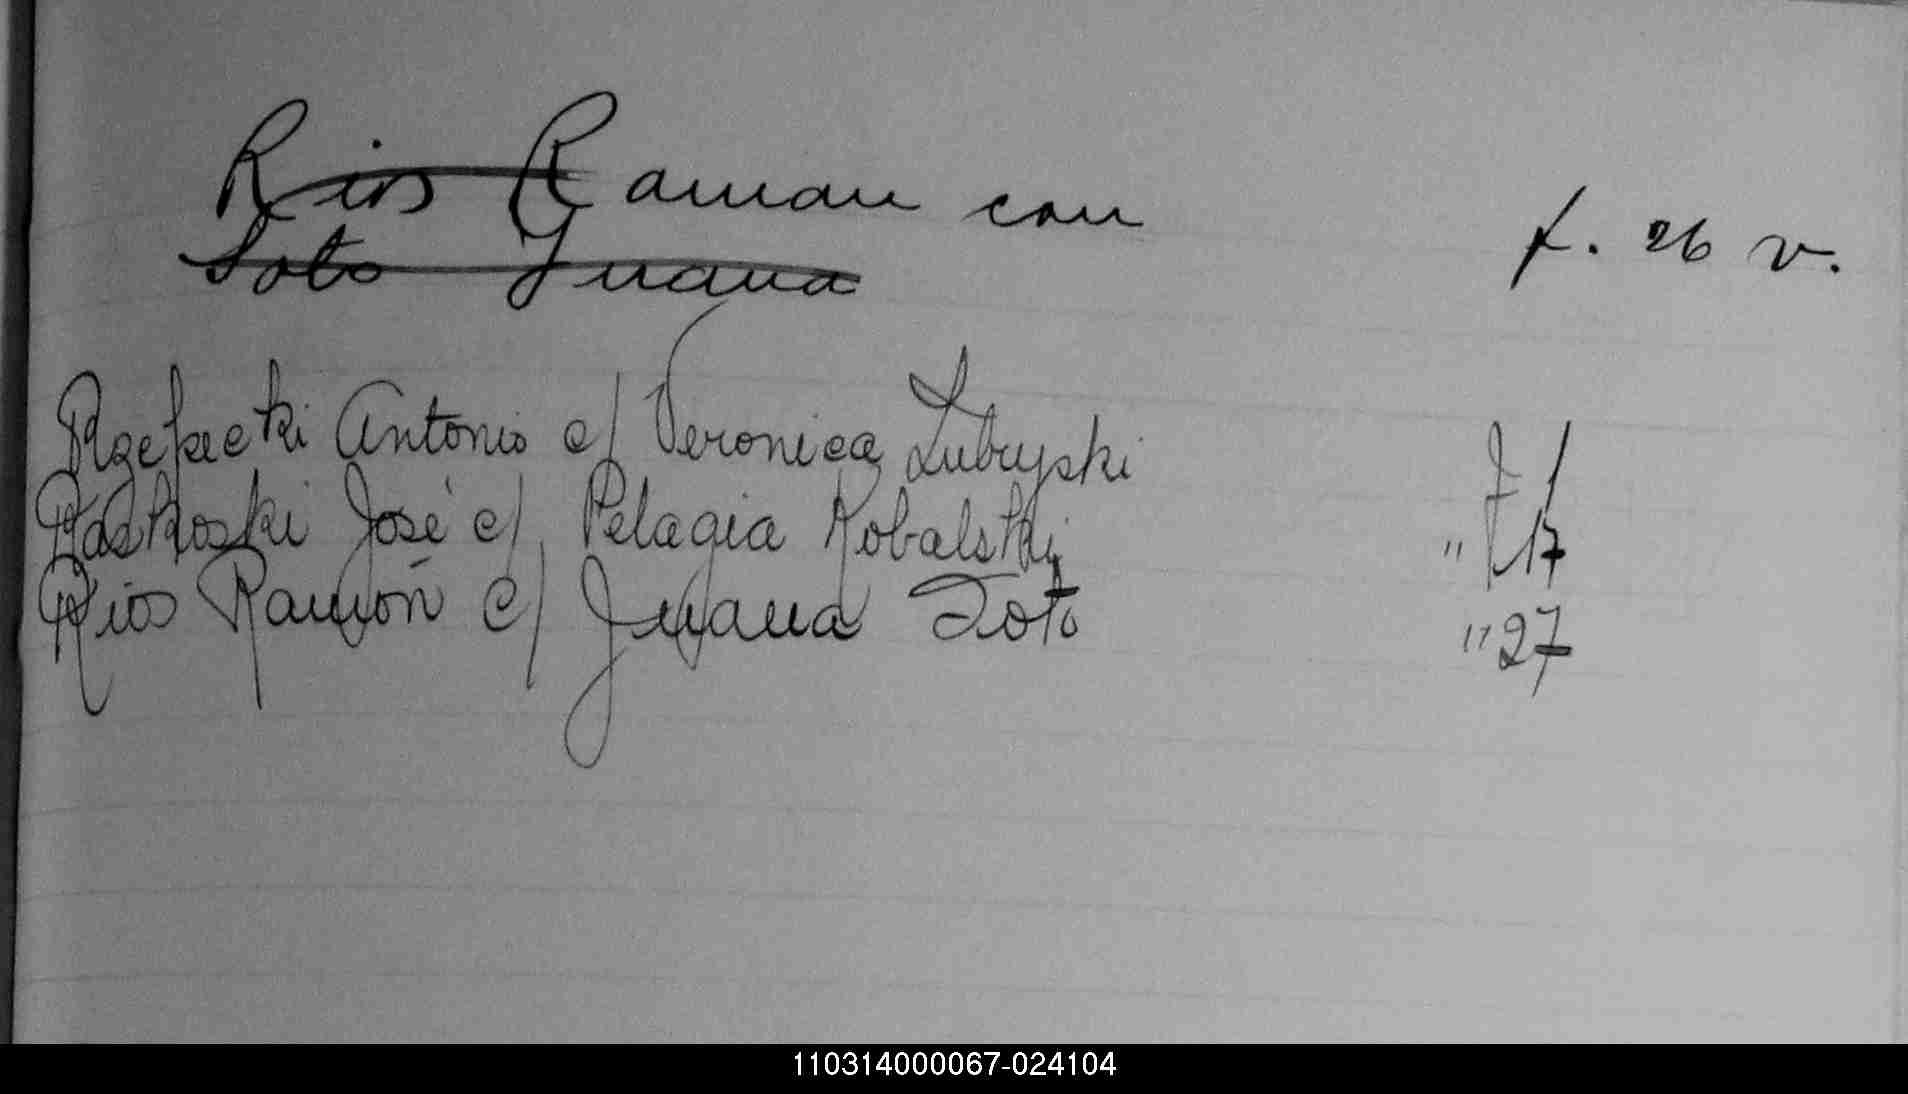 Rios Raman con
Soto Juana f. 26 v.
Rzepecki Antonio c/ Veronica Lubryski f 1
Raskoski José c/ Pelagia Kobalski " 17
Rios Ramón c/ Juana Soto " 27
110314000067-024104